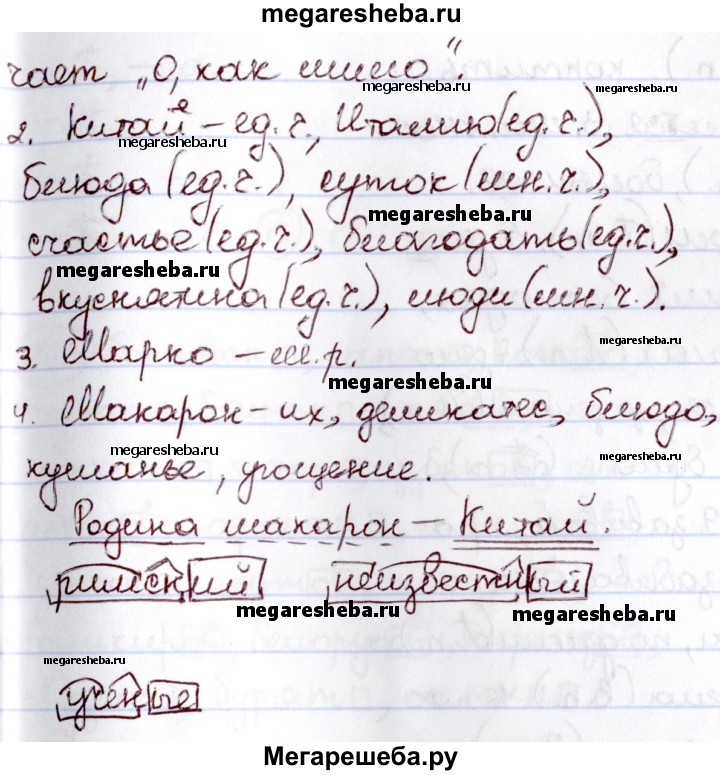 megaresheba.ru
чает „О, как мило".
megaresheba.ru
2. Китай – ед. ч., Италию (ед. ч.),
е
megaresheba.ru
megaresheba.ru
блюда (ед. ч.), суток (мн. ч.),
megaresheba.ru
счастье (ед. ч.), благодать (ед. ч.),
megaresheba.ru
вкуснятина (ед. ч.), люди (мн. ч.).
megaresheba.ru
3. Марко – м. р.
megaresheba.ru
4. Макарон – их, деликатес, блюдо,
megaresheba.ru
megaresheba.ru
кушанье, угощение.
Родина макарон – Китай.
римский неизвестный
megaresheba.ru
megaresheba.ru
megaresheba.ru
ученые
Мегарешеба.ру